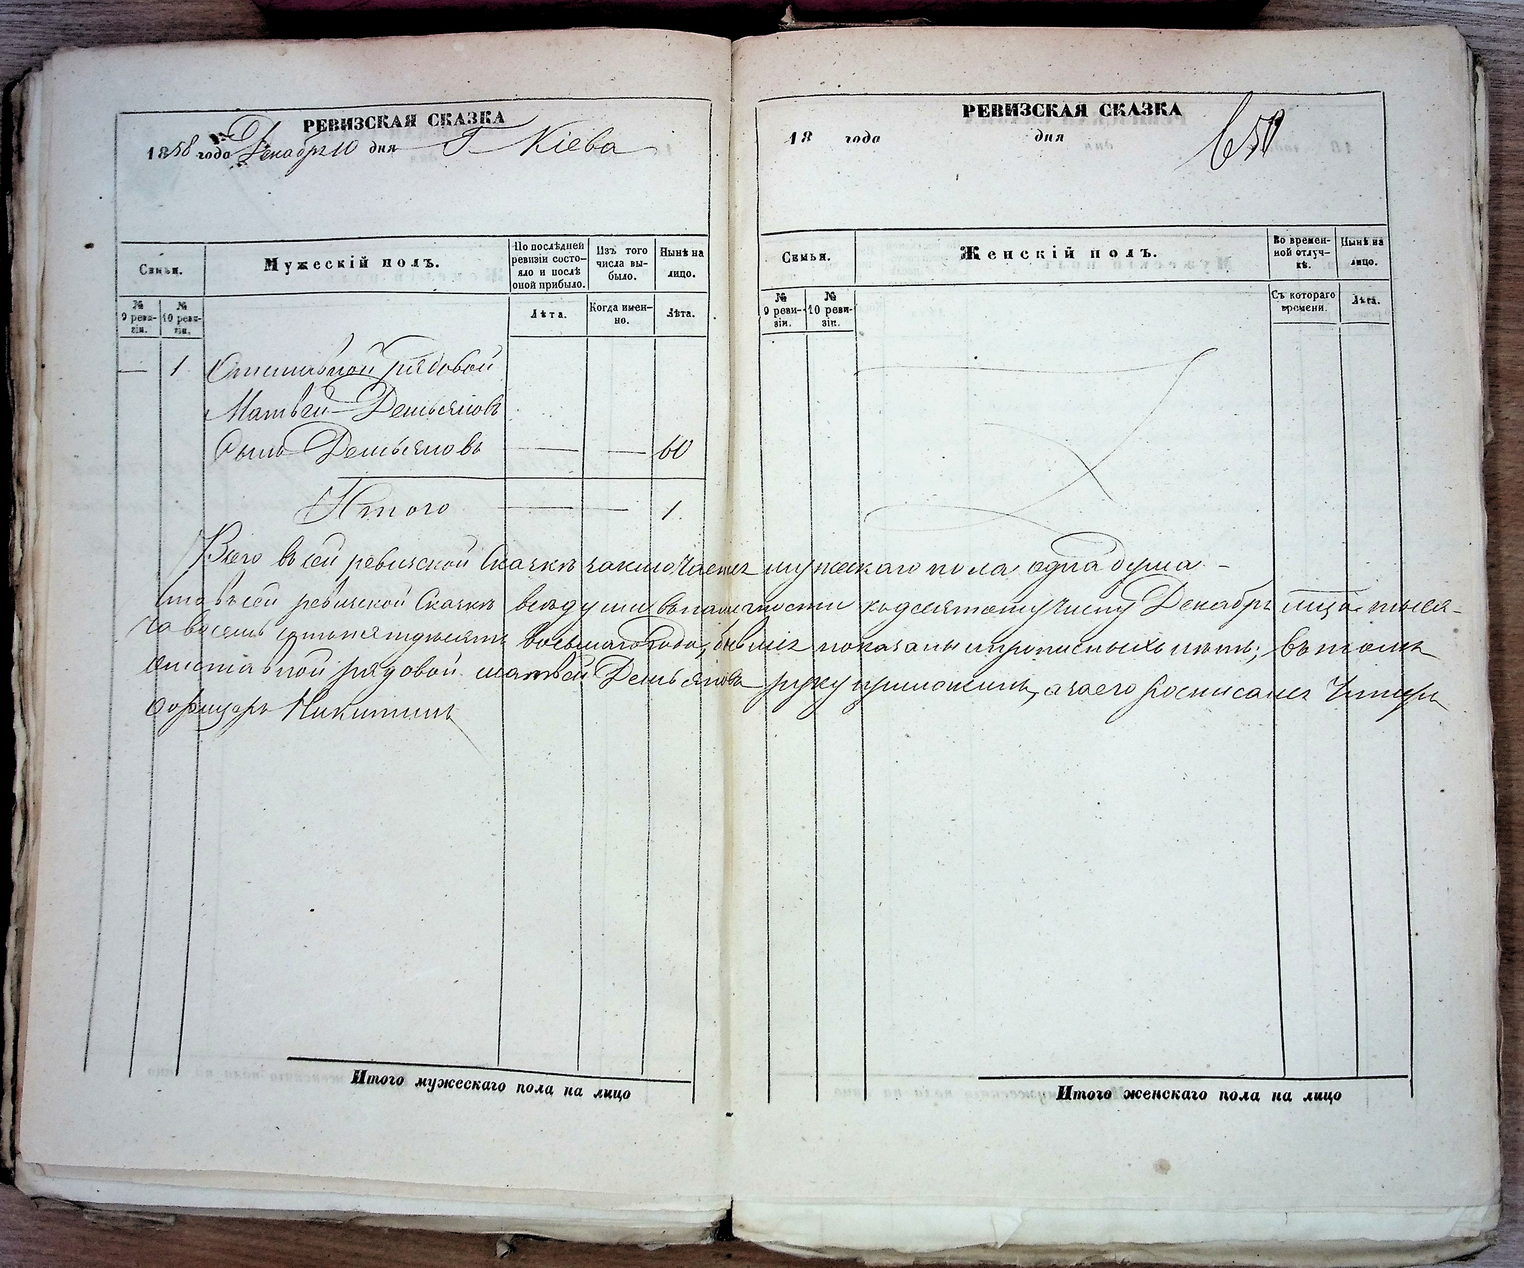 РЕВИЗСКАЯ СКАЗКА
1858 года Декабря 10 дня Г Кіева
Семья.
Мужескій полъ.
По послѣдней ревизіи состояло и послѣ оной прибыло.
Изъ того числа выбыло.
Нынѣ на лицо.
№ 9 ревизіи.
№ 10 ревизіи.
Лѣта.
Когда именно.
Лѣта.
— 1 Отставной рядовой
Матвей Демьяновъ
Сынъ Демьяновъ — — 60
Итого — — 1.
РЕВИЗСКАЯ СКАЗКА
18 года дня
650
Семья.
Женскій полъ.
Во временной отлучкѣ.
Нынѣ на лицо.
№ 9 ревизіи.
№ 10 ревизіи.
Съ котораго времени.
Лѣта.
Всего въ сей ревизской Сказкѣ заключается мужескаго пола одна душа –
что въ сей ревизской Сказкѣ всѣ души въ наличности къ десятому числу Декабря мца тыся-
ча восемь сотъ пятьдесятъ восьмаго года, бывшіе показаны и прописныхъ нѣтъ; въ томъ
отставной рядовой Матвей Демьяновъ руку приложилъ, а за его росписался Унтеръ
Офицеръ Никитинъ
Итого мужескаго пола на лицо
Итого женскаго пола на лицо